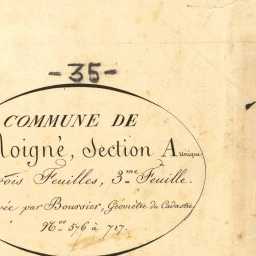 - 35 -
COMMUNE DE
Moigné, Section A. unique
rois Feuilles, 3.me Feuille.
ée par Boursier, Géomètre du Cadastre
N.os 576 à 717.